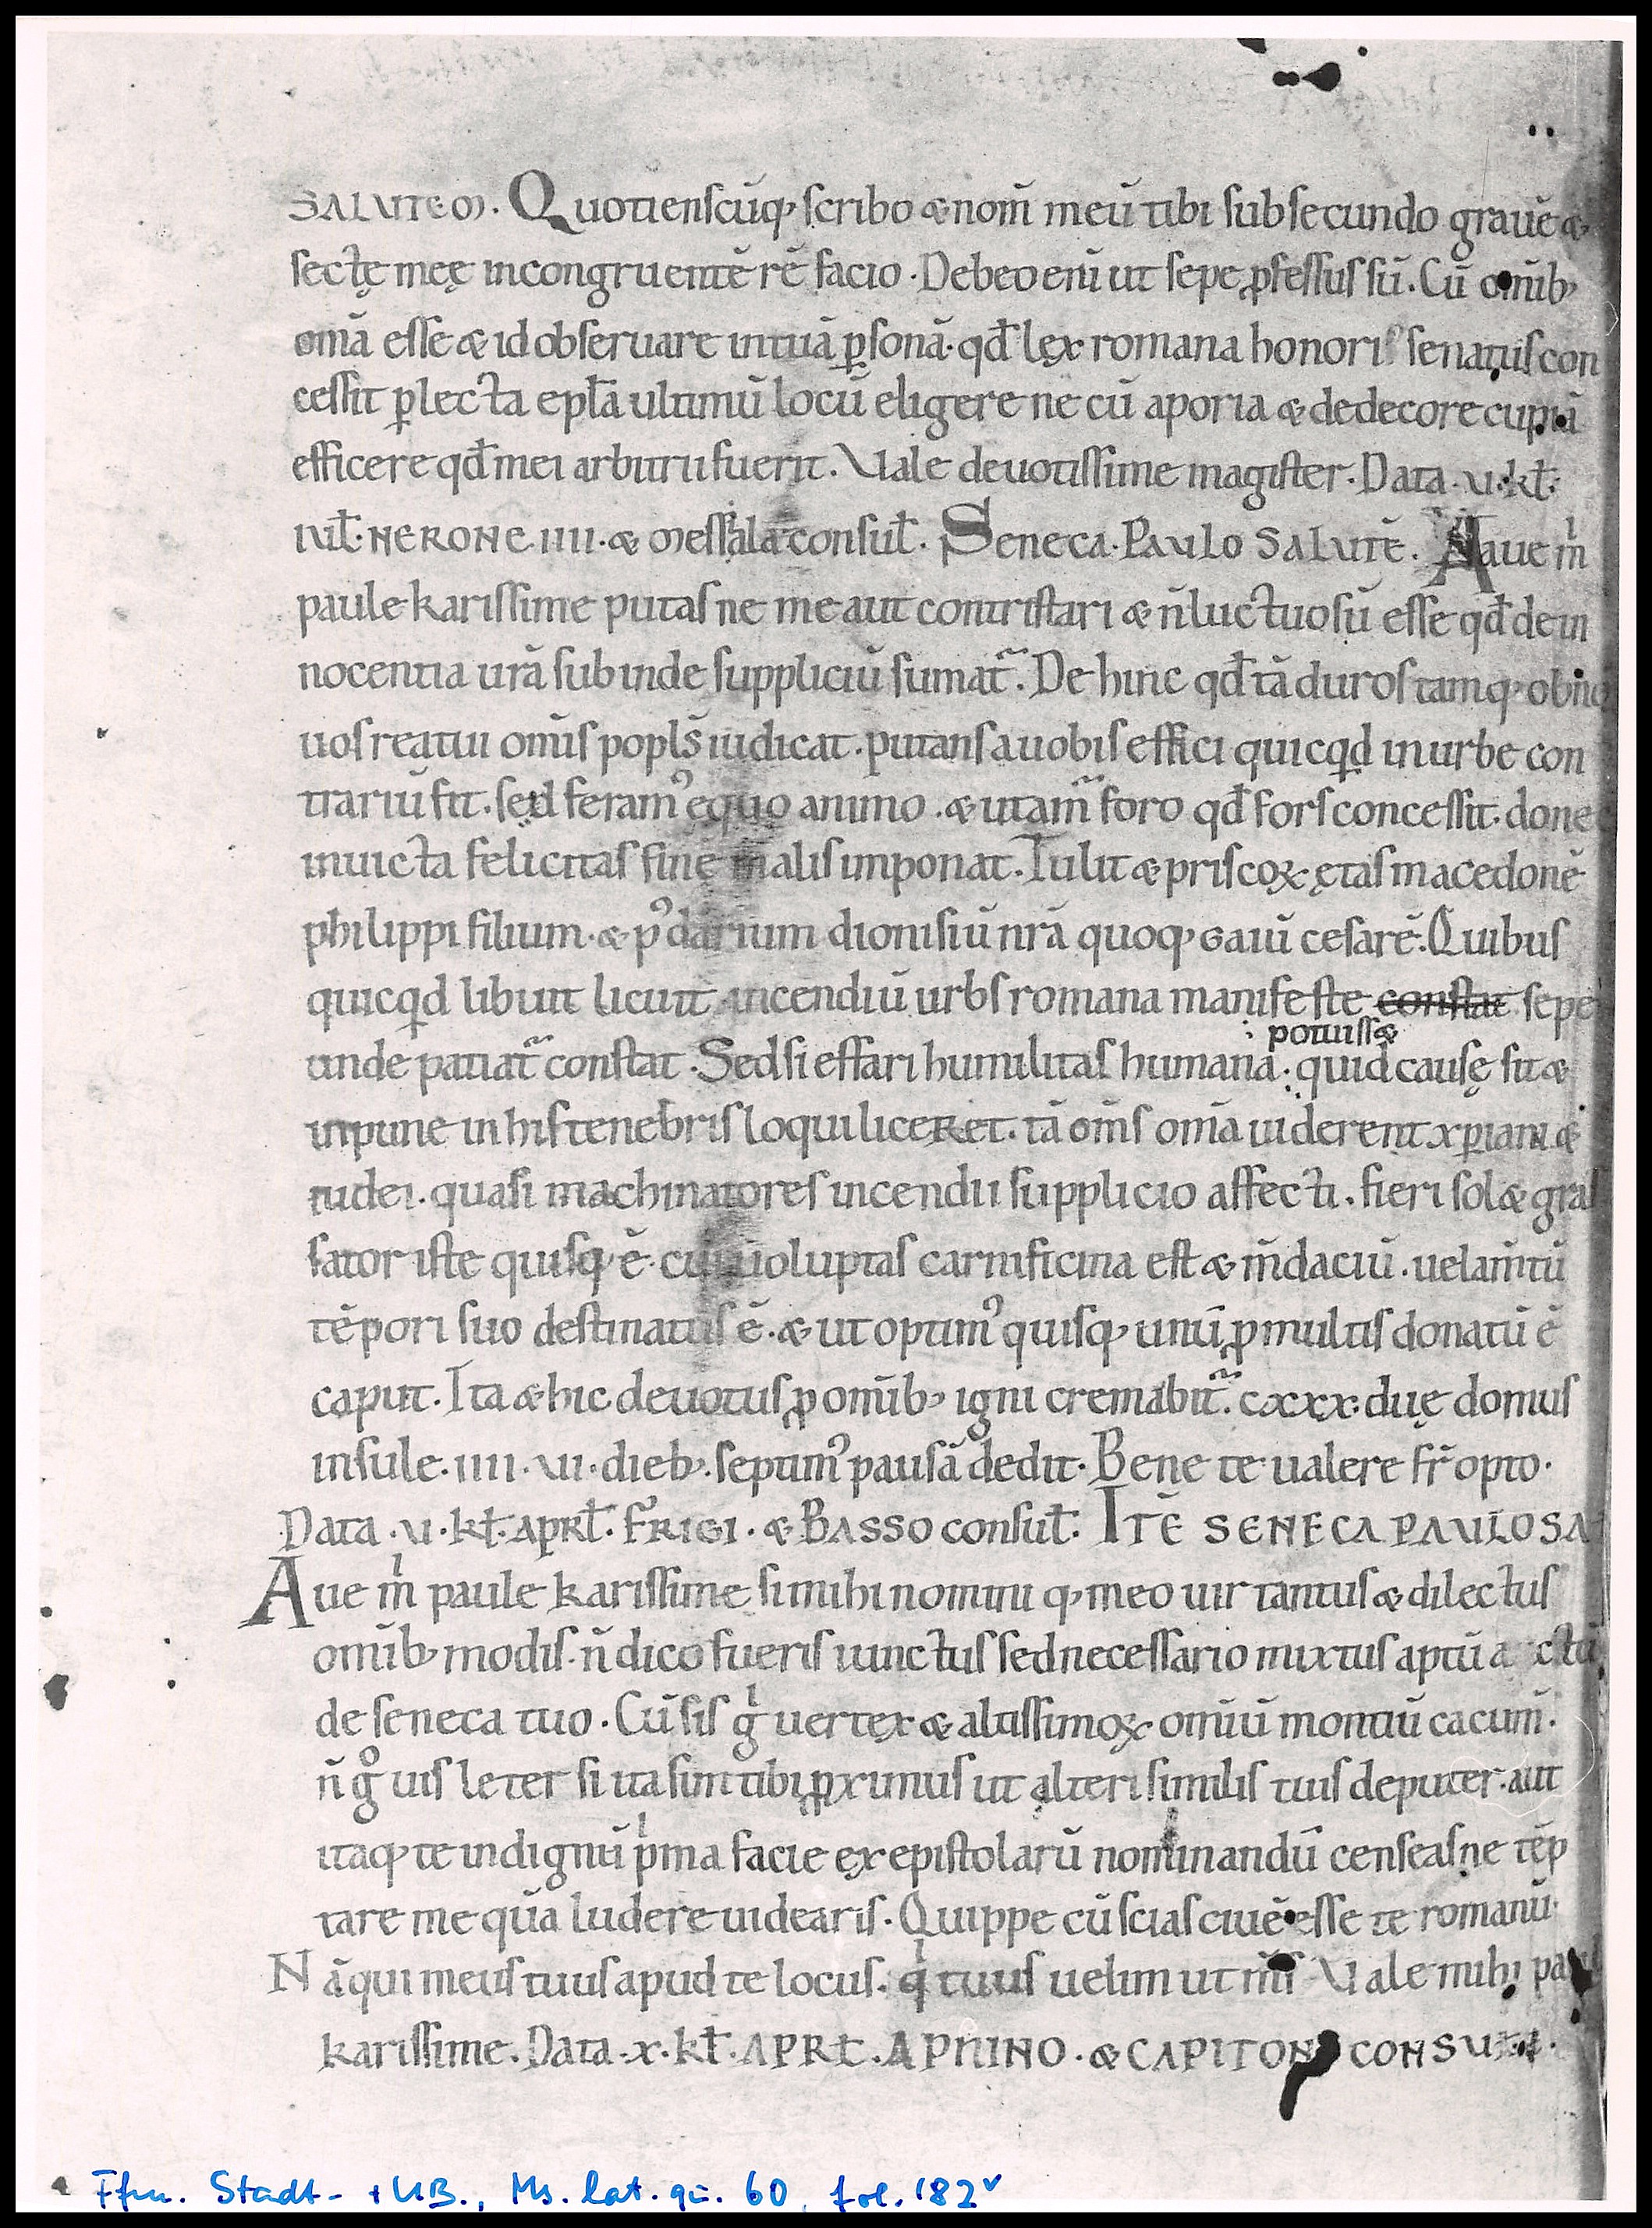 SALUTEM. Quotienscūq; scribo & nom̄ meū tibi subsecundo grauē &
sectę meę incongruentē rē facio. Debeo eni ut sepe ꝓfessus sū. Cū omīb;
omā esse & id obseruare intuā ꝑsonā. qđ lęx romana honori senatus con
cessit ꝑlecta epłā ultimū locū eligere ne cū aporia & dedecore cupiā
efficere qđ mei arbitrii fuerit. Uale deuotissime magister. Data. u. kł.
iuł. NERONE. IIII. & Messala consuł. Seneca. PAULO SALUTĒ. Aaue m̍
paule karissime putasne me aut contristari & n̄ luctuosū esse qđ de in
nocentia urā subinde suppliciū sumat̃. De hinc qđ tā duros tamq; obno
uos reatui omīs popl̄s iudicat. putans a uobis effici quicqd in urbe con
trariū fit. sed feramꝰ equo animo. & utam̃ foro qđ fors concessit. done
inuicta felicitas finē malis imponat. Tulit & priscoꝝ ętas macedonē
philippi filium. & pꝰ darium dionisiū nrā quoq; gaiū cesarē. Quibus
quicqd libuit licuit incendiū urbs romana manifeste constat sepe
unde patiat̃ constat. Sed si effari humilitas humana : quid causę sit &
potuiss&
inpune in his tenebris loqui liceret. tā om̄s omā uiderent xꝑiani &
iudei. quasi machinatores incendii supplicio affecti. fieri sol& gras
sator iste quisq; ē. cui uoluptas carnificina est & m̄daciū. uelam̄tū
tēpori suo destinatus ē. & ut optimꝰ quisq; unū ꝓ multis donatū ē
caput. Ita & hic deuotus ꝓ omīb; igni cremabit̃. cxxx. duę domus
insule. IIII. ui. dieb;. septimꝰ pausā dedit. Bene te ualere fr̄ opto.
Data. u. kł. APRł. FRIGI. & BASSO consuł. ITĒ SENECA PAULO SA
Aue m̍ paule karissime si mihi nomini q; meo uir tantus & dilectus
omīb; modis. n̄ dico fueris iunctus sed necessario mixtus aptū a ctū
de seneca tuo. Cū sis g̍ uertex & altissimoꝝ omīū montiū cacum̄.
n̄ gͦ uis leter si ita sim tibi ꝓximus ut alteri similis tuis deputer. aut
itaq; te indignū p̍ma facie ex epistolarū nominandū censeas ne tēp
tare me quā ludere uidearis. Quippe cū scias ciuē esse te romanū.
Nā qui meus tuus apud te locus. q̍ tuus uelim ut m̄s Uale mihi paul
karissime. Data. x. kł. APRł. APNINO. & CAPITON CONSUł.
Ffm. Stadt- + UB., Ms. lat. qu. 60, fol. 182v